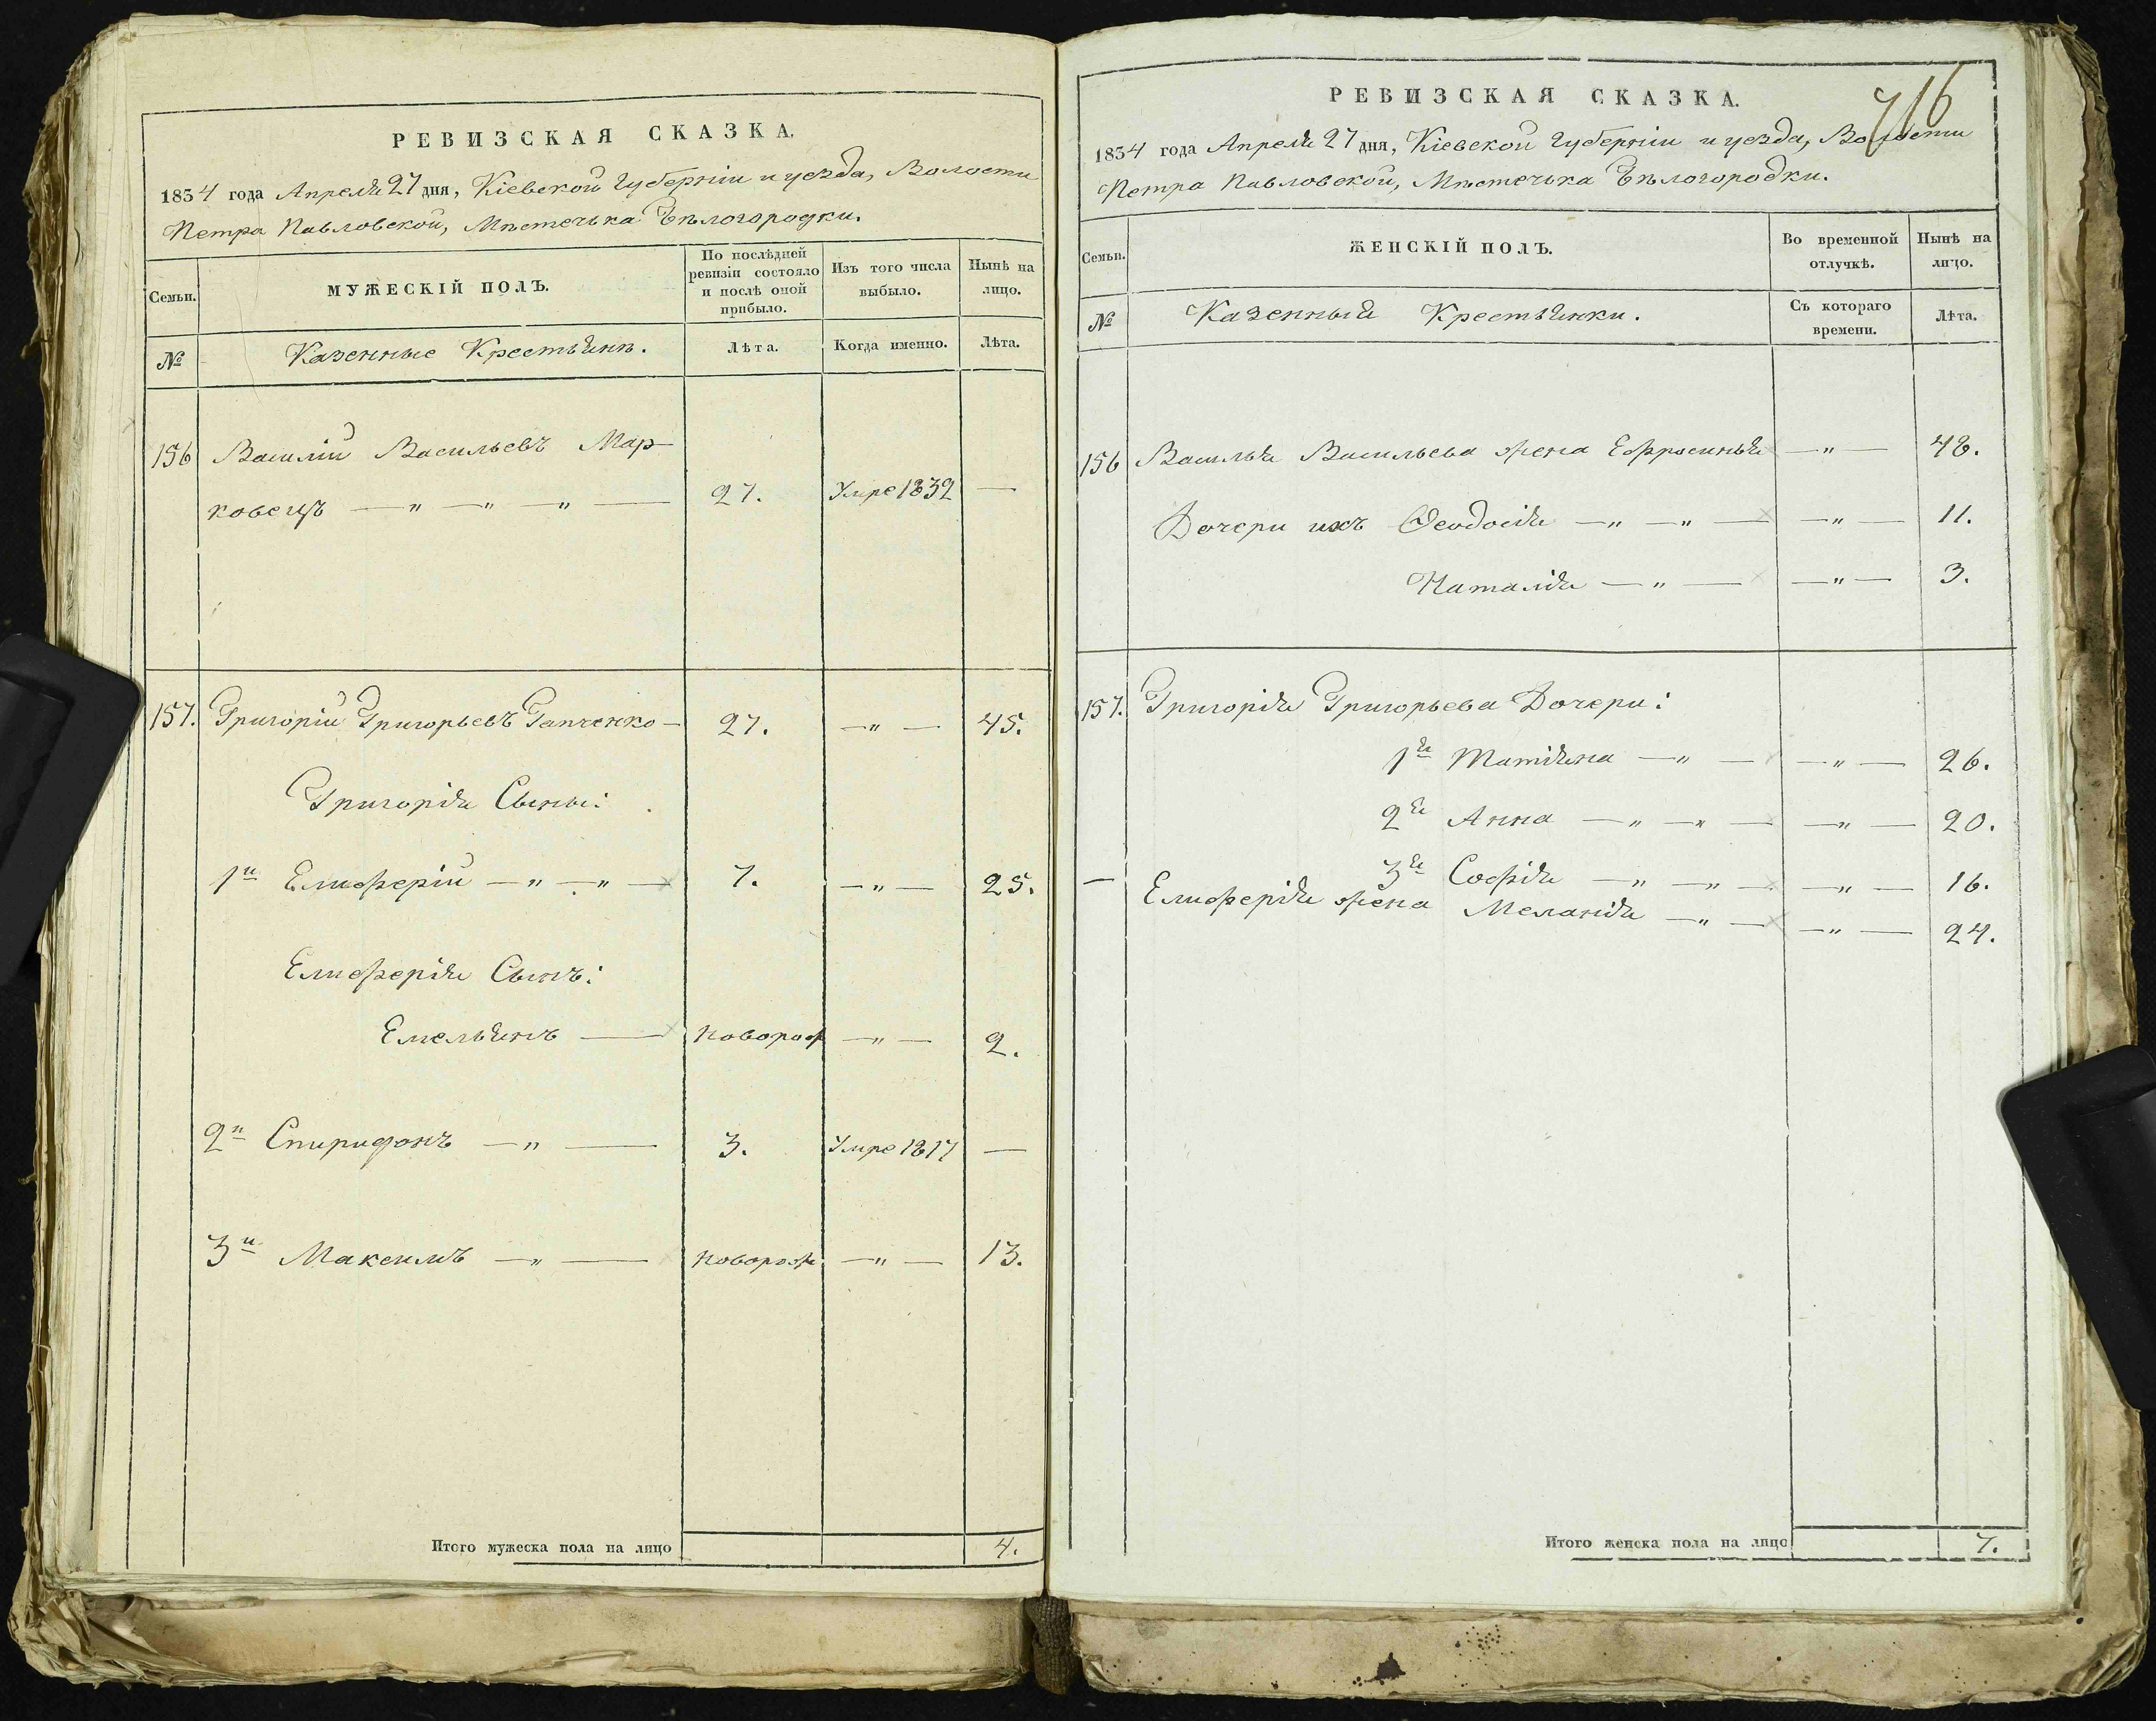 РЕВИЗСКАЯ СКАЗКА.
1834 года Апреля 27 дня, Кіевской Губерніи и уезда, Волости
Петра Павловской, Мѣстечька Бѣлогородки.
Семьи.
МУЖЕСКІЙ ПОЛЪ.
По послѣдней ревизіи состояло и послѣ оной прибыло.
Изъ того числа выбыло.
Нынѣ на лицо.
№
Казенные Крестьянѣ.
Лѣта.
Когда именно.
Лѣта.
156 Василій Васильевъ Мар-
ковецъ — " — " — " — 27. Умре 1832 —
157. Григорій Григорьевъ Гапченко — 27. — " — 45.
Григорія Сыны:
1й Елиферій — " — " — 7. — " — 25.
Елиферія Сынъ:
Емельянъ — новорож — " — 2.
2й Спиридонъ — " — 3. Умре 1817 —
3й Максимъ — " — новорож. — " — 13.
Итого мужеска пола на лицо 4.
716
РЕВИЗСКАЯ СКАЗКА.
1834 года Апреля 27 дня, Кіевской Губерніи и уезда, Волости
Петра Павловской, Мѣстечька Бѣлогородки.
Семьи.
ЖЕНСКІЙ ПОЛЪ.
Во временной отлучкѣ.
Нынѣ на лицо.
№
Казенныя Крестьянки.
Съ котораго времени.
Лѣта.
156 Василья Васильева жена Ефросинья — " — 48.
Дочери ихъ Феодосія — " — " — — " — 11.
Наталія — " — — " — 3.
157. Григорія Григорьева Дочери:
1я Матіяна — " — — " — 26.
2я Анна — " — " — — " — 20.
— 3я Софія — " — " — — " — 16.
Елиферія жена Меланія — " — — " — 24.
Итого женска пола на лицо 7.